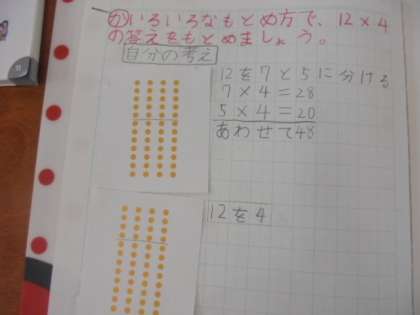 かいろいろなもとめ方で、12×4
の答えをもとめましょう。
自分の考え
12を7と5に分ける
7×4=28
5×4=20
あわせて48
12を4